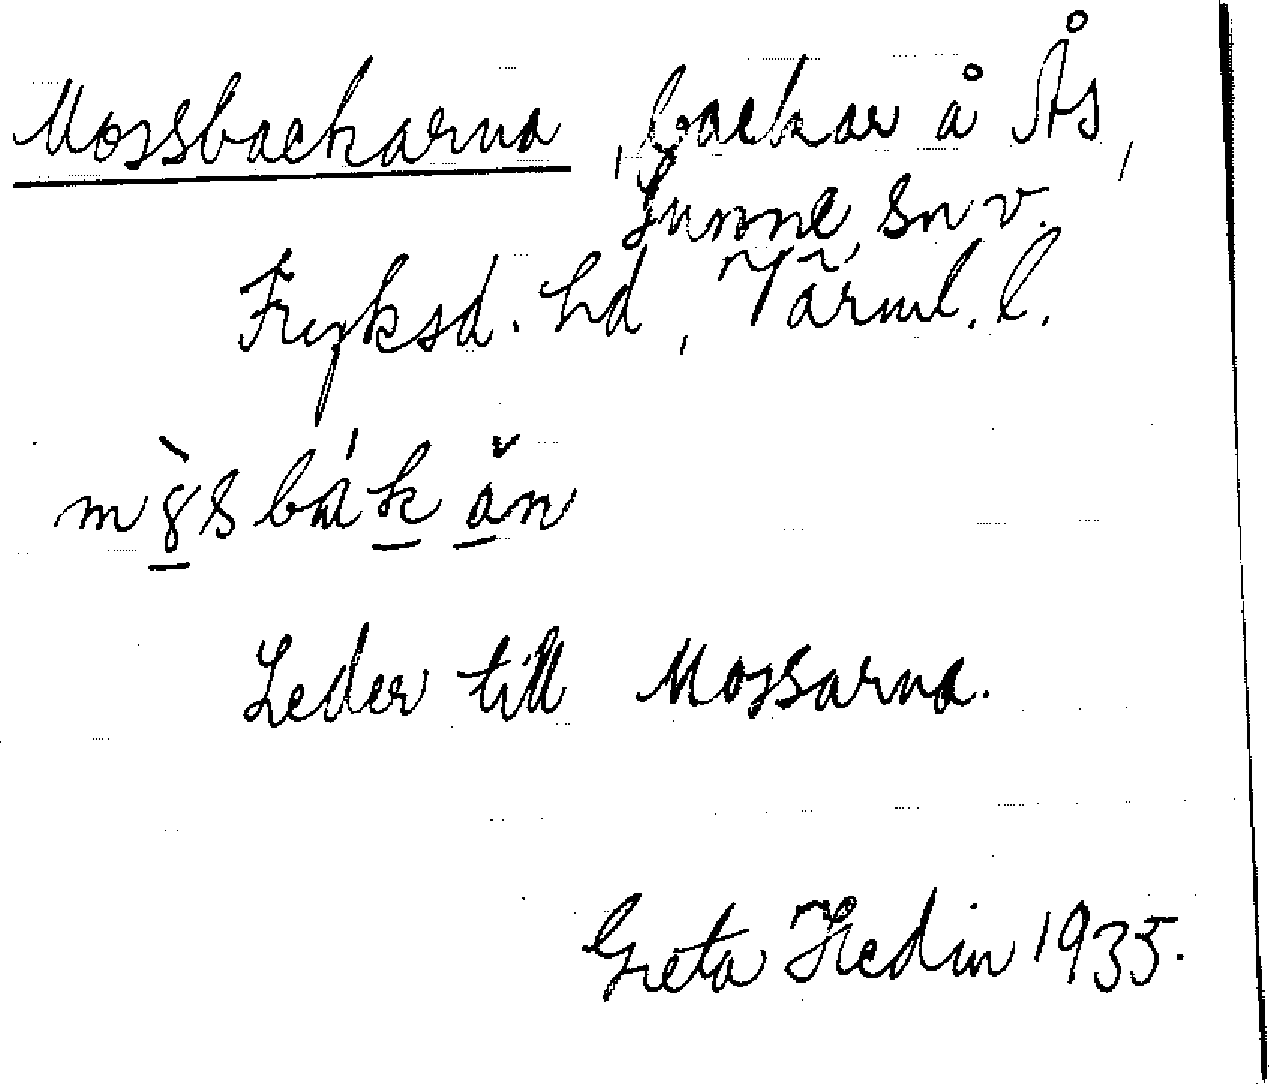 Mossbackarna, backar å Ås,
Sunne sn v.
Fryksd. hd, Värml. l.
Leder till Mossarna.
Greta Hedin 1935.